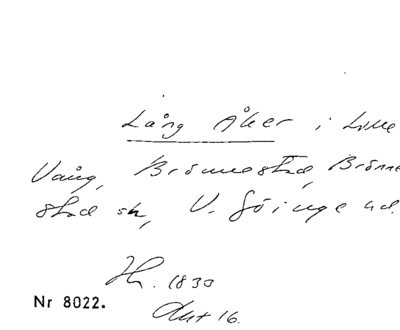 Lång Åker i Lille
Vång, Brönnestad, Brönne-
stad sn, V. Göinge hd.
Hr. 1830
Akt 16.
Nr 8022.